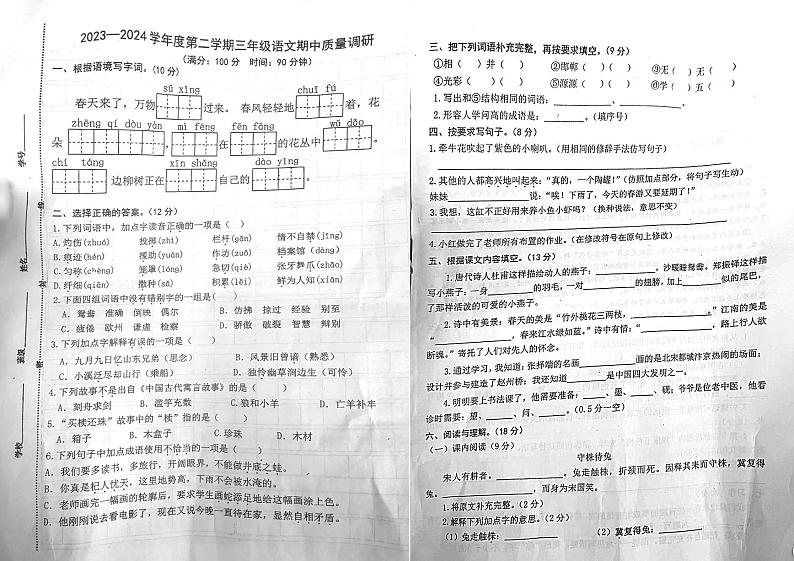 2023—2024学年度第二学期三年级语文期中质量调研
(满分：100分 时间：90分钟)
一、根据语境写字词。(10分)
sū xǐng chuī fú
春天来了，万物 过来。 春风轻轻地 着，花
zhēng qí dòu yàn mì fēng fēn fāng wǔ dǎo
朵 ， 在 的花丛中 。
chí táng xīn shǎng dào yǐng
边柳树正在 自己的 。
二、选择正确的答案。(12分)
1.下列词语中，加点字读音正确的一项是( )
A.灼伤(zhuó) 投掷(zhì) 栏杆(gān) 情不自禁(jīng)
B.痕迹(hén) 援助(yuán) 作坊(zuō) 档案馆(dàng)
C.匀称(chèng) 笼罩(lóng) 急切(qiè) 张牙舞爪(zhǎo)
D.纤细(qiān) 散文(shì) 积累(lěi) 鲜为人知(xiǎn)
2.下面四组词语中没有错别字的一组是( )
A. 鸳鸯 准确 倒映 偶尔 B. 仿拂 掠过 经验 别至
C. 疲倦 欧州 谦虚 检察 D. 骄傲 破裂 智慧 辩别
3.下列加点字的解释有误的一项是( )
A. 九月九日忆山东兄弟（思念） B. 风景旧曾谙（熟悉）
C. 小溪泛尽却山行（乘船） D. 独怜幽草涧边生（可怜）
4.下列故事不是出自《中国古代寓言故事》的是( )
A. 刻舟求剑 B. 滥竽充数 C.狼和小羊 D. 亡羊补牢
5. “买椟还珠”故事中的“椟”指的是( )
A. 箱子 B. 木盒子 C.珍珠 D. 木材
6.下列句子中加点成语使用不恰当的一项是( )
A. 我们要多读书，多旅行，开阔眼界，不能做井底之蛙。
B. 你真是杞人忧天，这里地势高，下雨不会被水淹的。
C. 老师画完一幅画的轮廓后，要求学生画蛇添足地给这幅画涂上色。
D. 他刚刚说去看电影了，现在又说今晚一直待在家，显然自相矛盾。
学号
姓名
班级
学校
三、把下列词语补充完整，再按要求填空。(9分)
①相( )并( ) ②邯郸( )( ) ③无( )无( )
④光彩( )( ) ⑤源源( )( ) ⑥学( )五( )
1.写出和⑤结构相同的词语：、、。
2.形容人学问高的成语是：。(填序号)
四、按要求写句子。(8分)
1.牵牛花吹起了紫色的小喇叭。（用相同的修辞手法仿写句子）
2.其他的人都高兴地叫起来：“真的，一个陶罐！”（仿照加点部分，将句子写生动）
妹妹说：“唉！下雨了，今天的春游又要延期了！”
3.我想，这缸不正好用来养小鱼小虾吗？（换种说法，意思不变）
4.小红做完了老师所有布置的作业。（在修改符号在原句上修改）
五、根据课文内容填空。(13分)
1.唐代诗人杜甫这样描绘动人的燕子：，沙暖睡鸳鸯。郑振铎这样描
写小燕子：一身的羽毛，一对的翅膀，加上似的尾巴，
了那样活泼的可爱的小燕子。
2.诗中有美景：春天的美是“竹外桃花三两枝，。”，江南的美是
“，春来江水绿如蓝。”诗中有情：“，路上行人欲
断魂。”寄托了人们对先人的怀念。
3.通过学习，我知道：张择端的名画画的是北宋都城汴京热闹的场面；
设计并参与建造了赵州桥；我还知道是中国四大发明之一。
4.明明要上书法课了，他需要准备：、墨、、砚；爷爷是位老中医，他看
诊时需要：望、、问、。(0.5分一空)
六、阅读与理解。(18分)
(一)课内阅读(9分)
守株待兔
宋人有耕者。。兔走触株，折颈而死。因释其耒而守株，冀复得
兔。，而身为宋国笑。
1.将原文补充完整。(2分)
2.解释下列加点字的意思。(2分)
(1)兔走触株： (2)冀复得兔：